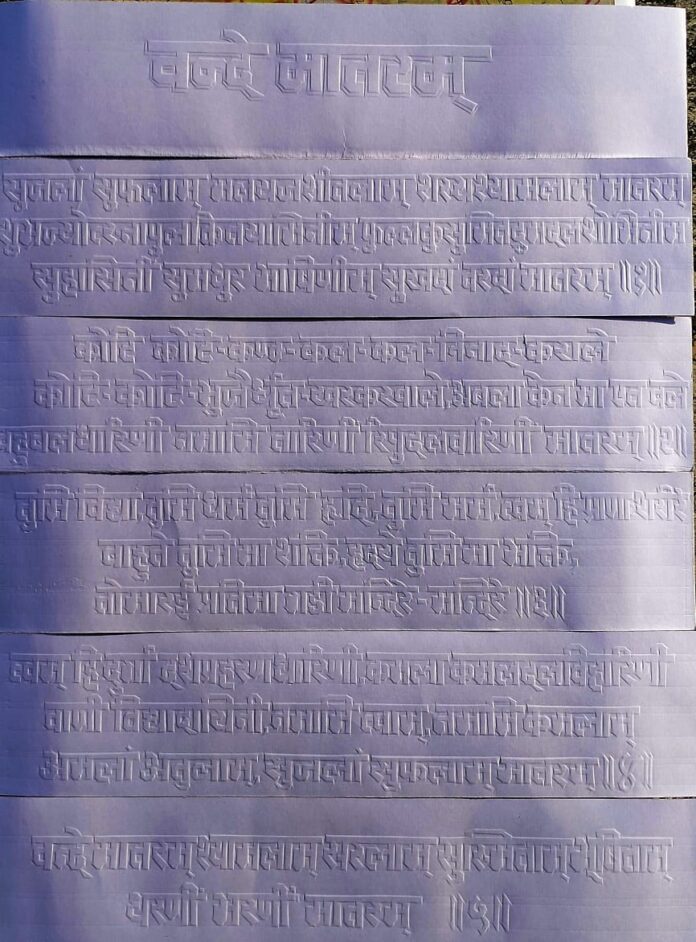 वन्दे मातरम्
सुजलां सुफलाम् मलयजशीतलाम् शस्यश्यामलाम् मातरम्
शुभ्रज्योत्स्नापुलकितयामिनीम् फुल्लकुसुमितद्रुमदलशोभिनीम्
सुहासिनीं सुमधुर भाषिणीम् सुखदां वरदां मातरम् ॥१॥
कोटि कोटि-कण्ठ-कल-कल-निनाद-कराले
कोटि-कोटि-भुजैर्धृत-खरकरवाले,अबला केन मा एत बले
बहुबलधारिणीं नमामि तारिणीं रिपुदलवारिणीं मातरम्॥२॥
तुमि विद्या,तुमि धर्म तुमि हृदि,तुमि मर्म,त्वम् हि प्राणाःशरीरे
बाहुते तुमि मा शक्ति,हृदये तुमि मा भक्ति,
तोमारई प्रतिमा गडी मन्दिरे-मन्दिरे ॥३॥
त्वम् हि दुर्गा दशप्रहरणधारिणी,कमला कमलदलविहारिणी
वाणी विद्यादायिनी,नमामि त्वाम्,नमामि कमलाम्
अमलां अतुलाम्,सुजलां सुफलाम् मातरम्॥४॥
वन्दे मातरम् श्यामलाम् सरलाम् सुस्मिताम् भूषिताम्
धरणीं भरणीं मातरम् ॥५॥